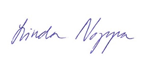 Linda Noppa